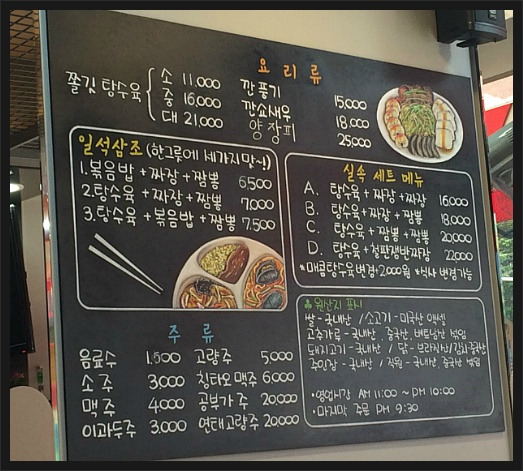 요리류
쫄깃 탕수육 소 11,000
중 16,000
대 21,000
깐풍기 15,000
깐쇼새우 18,000
양장피 25,000
일석삼조 (한그릇에 세가지맛~!)
1.볶음밥 +짜장 +짬뽕 6,500
2.탕수육 +짜장 +짬뽕 7,000
3.탕수육 +볶음밥 +짬뽕 7,500
실속 세트 메뉴
A. 탕수육+짜장+짜장 16,000
B. 탕수육+짜장+짬뽕 18,000
C. 탕수육+짬뽕+짬뽕 20,000
D. 탕수육+철판쟁반짜장 22,000
*매콤탕수육변경+2,000원 *식사 변경가능
주 류
음료수 1,500
소 주 3,000
맥 주 4,000
이과두주 3,000
고량주 5,000
칭타오 맥주 6,000
공부가 주 20,000
연태고량주 20,000
원산지 표시
쌀-국내산 / 소고기-미국산
고추가루-국내산, 중국산, 베트남산
돼지고기-국내산 / 닭-브라질산/김치중국산
-국내산 / -국내산, 중국산
•영업시간 AM 11:00 ~ PM 10:00
•마지막 주문 PM 9:30